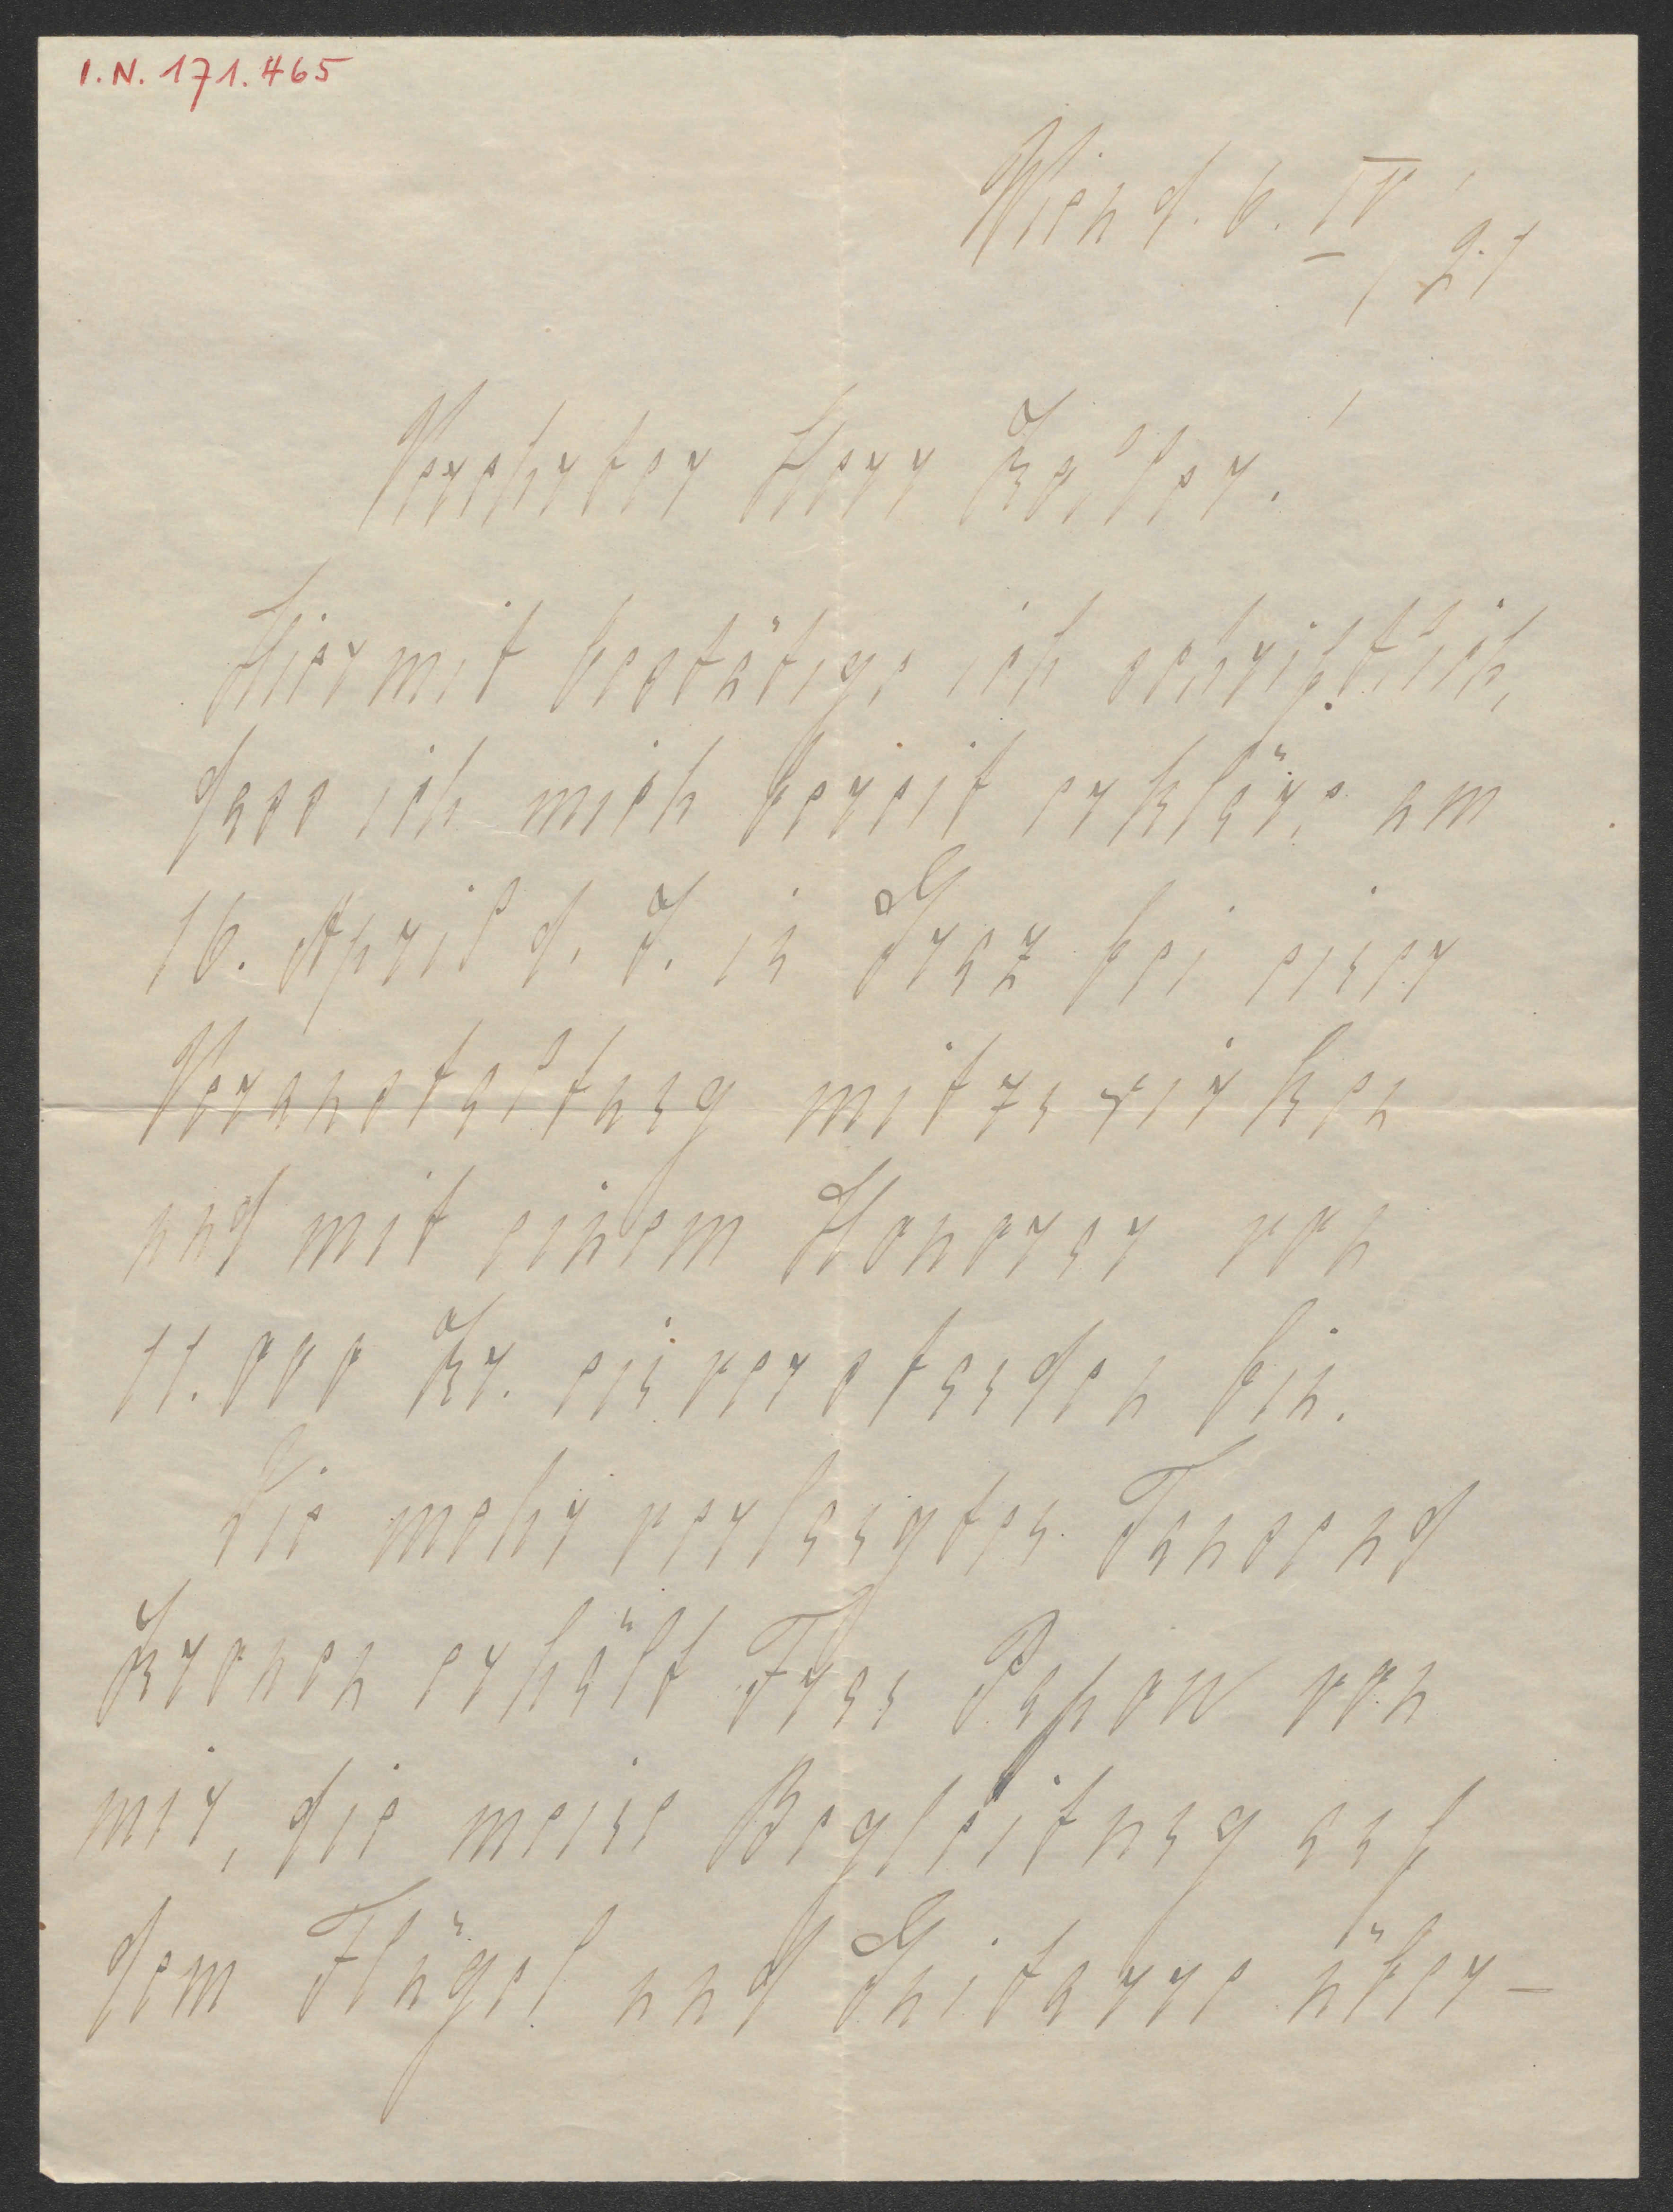 I.N. 171.465
Wien d. 6. IV
/ 21
Verehrter Herr Kål̈er!
Hiermit bestätige ich schriftlich,
dass ich mich bereit erkläre, am
16. April d. J. in Graz bei einer
Veranstaltung mitzuwirken
und mit einem Honorar von
11.000 Kr. einverstanden bin.
Die mehr verlangten Tausend
Kronen erhält Frau Pahow von
mir, die meine Begleitung auf
dem Flügel und Guitarre über-